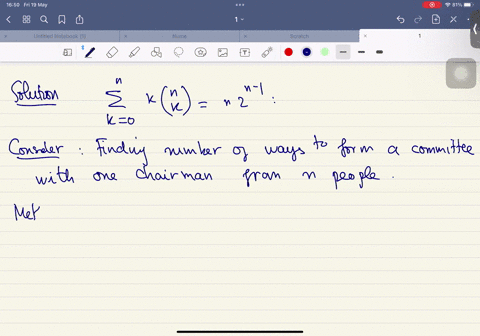 16:50 Fri 19 May
81%
1
Untitled Notebook (3)
Scratch
1
Solution ∑_{k=0}^{n} k (n k) = n 2^{n-1} :
Consider : Finding number of ways to form a committee
with one chairman from n people .
Met